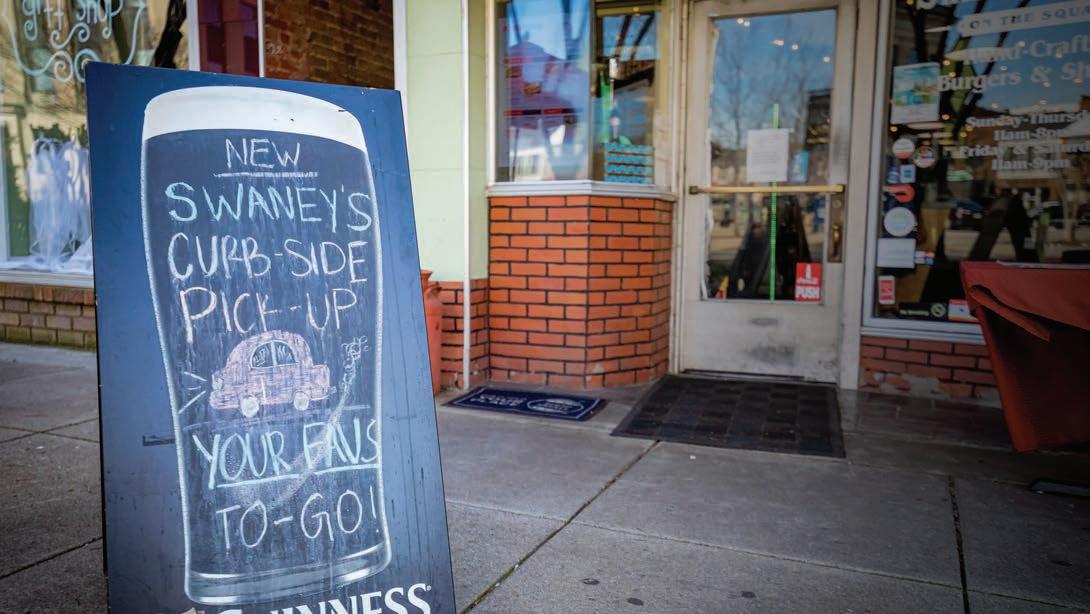 gift shop
NEW
SWANEY'S
CURB-SIDE
PICK-UP
YOUR FAVS
TO-GO!
GUINNESS
PUSH
ON THE SQUA
Hand-Craft
Burgers & S
Sunday-Thurs
11am-8pm
Friday & Saturda
11am-9pm